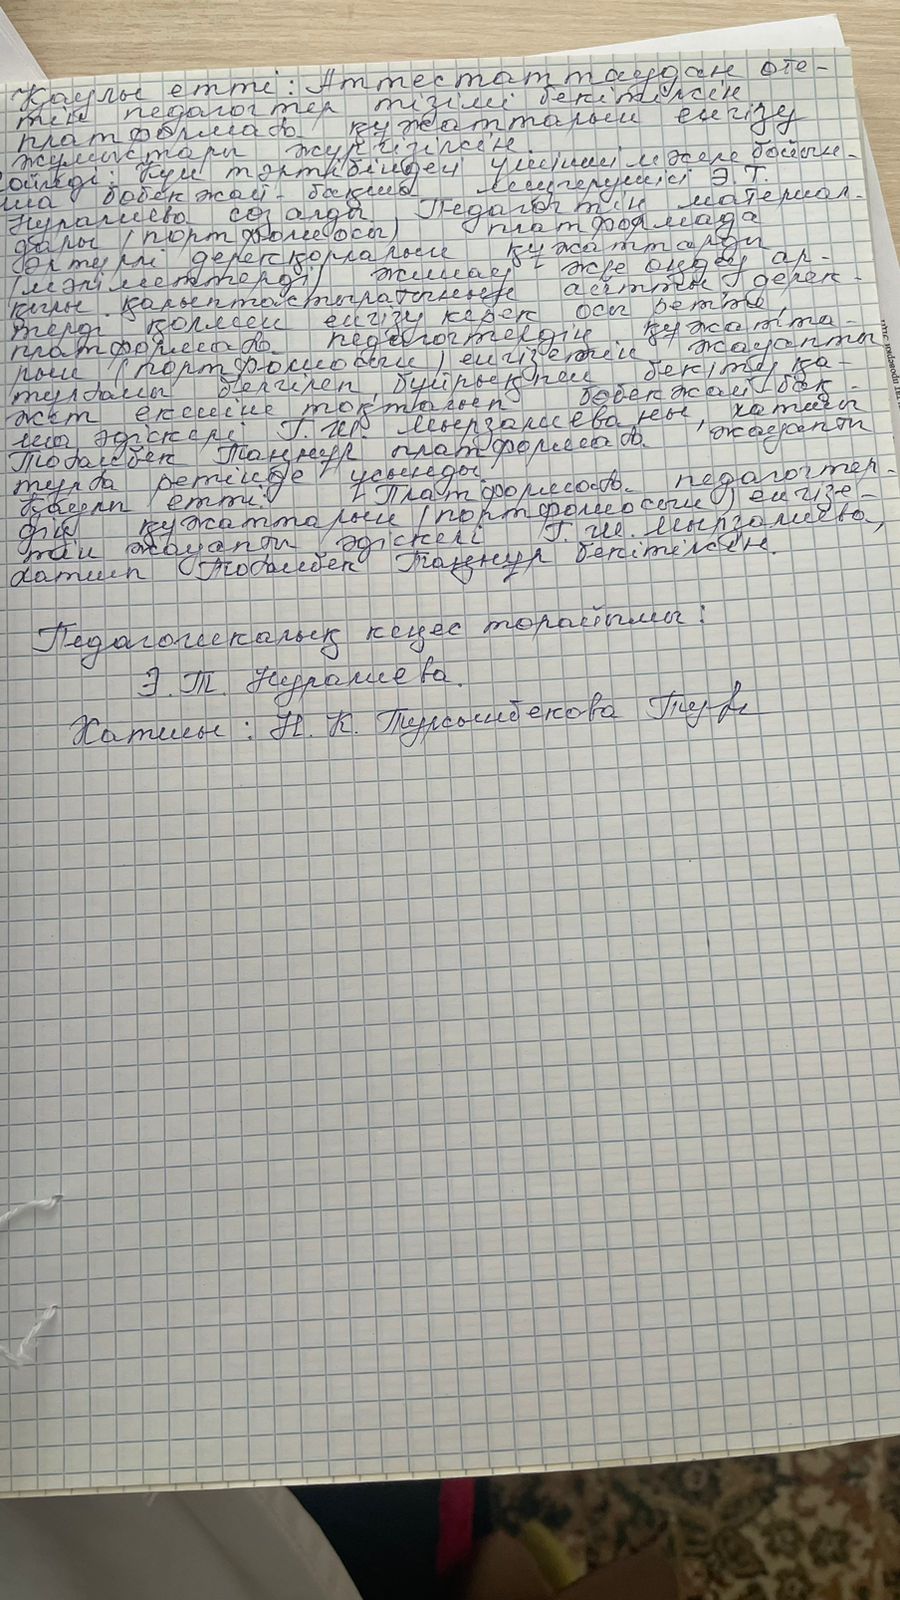 Қаулы етті: Аттестаттаудан өте-
тін педагогтер тізімі бекітілсін
платформаға құжаттарын енгізу
жұмыстары жүргізілсін.
Сөйледі: Күн тәртібіндегі үшінші мәселе бойын-
ша бөбекжай-бақша меңгерушісі Э.Т.
Нуралиева сөз алды, Педагогтің материал-
дары (портфолиосы) платформада
әртүрлі дерекқорларын құжаттарды
(мәліметтерді) жинау және өңдеу ар-
қылы қалыптастырылатынын айтты дерек-
терді қолмен енгізу керек осы ретте,
платформаға педагогтердің құжатта-
рын (портфолиосын) енгізетін жауапты
тұлғаны белгілеп, бұйрықпен бекіту қа-
жет екеніне тоқталып бөбекжай бақ-
ша әдіскері Г.Ш. Мырзалиеваны, хатшы
Тобашбек Таңнұр платформаға жауапты
тұлға ретінде ұсынды
Қаулы етті: Платформаға педагогтер-
дің құжаттарын (портфолиосын) енгізе-
тін жауапты әдіскері Г.Ш. Мырзалиева,
хатшы Таңнұр бекітілсін.
Педагогикалық кеңес төрайымы:
Э.Т. Нуралиева.
Хатшы: Н.К. Турсынбекова